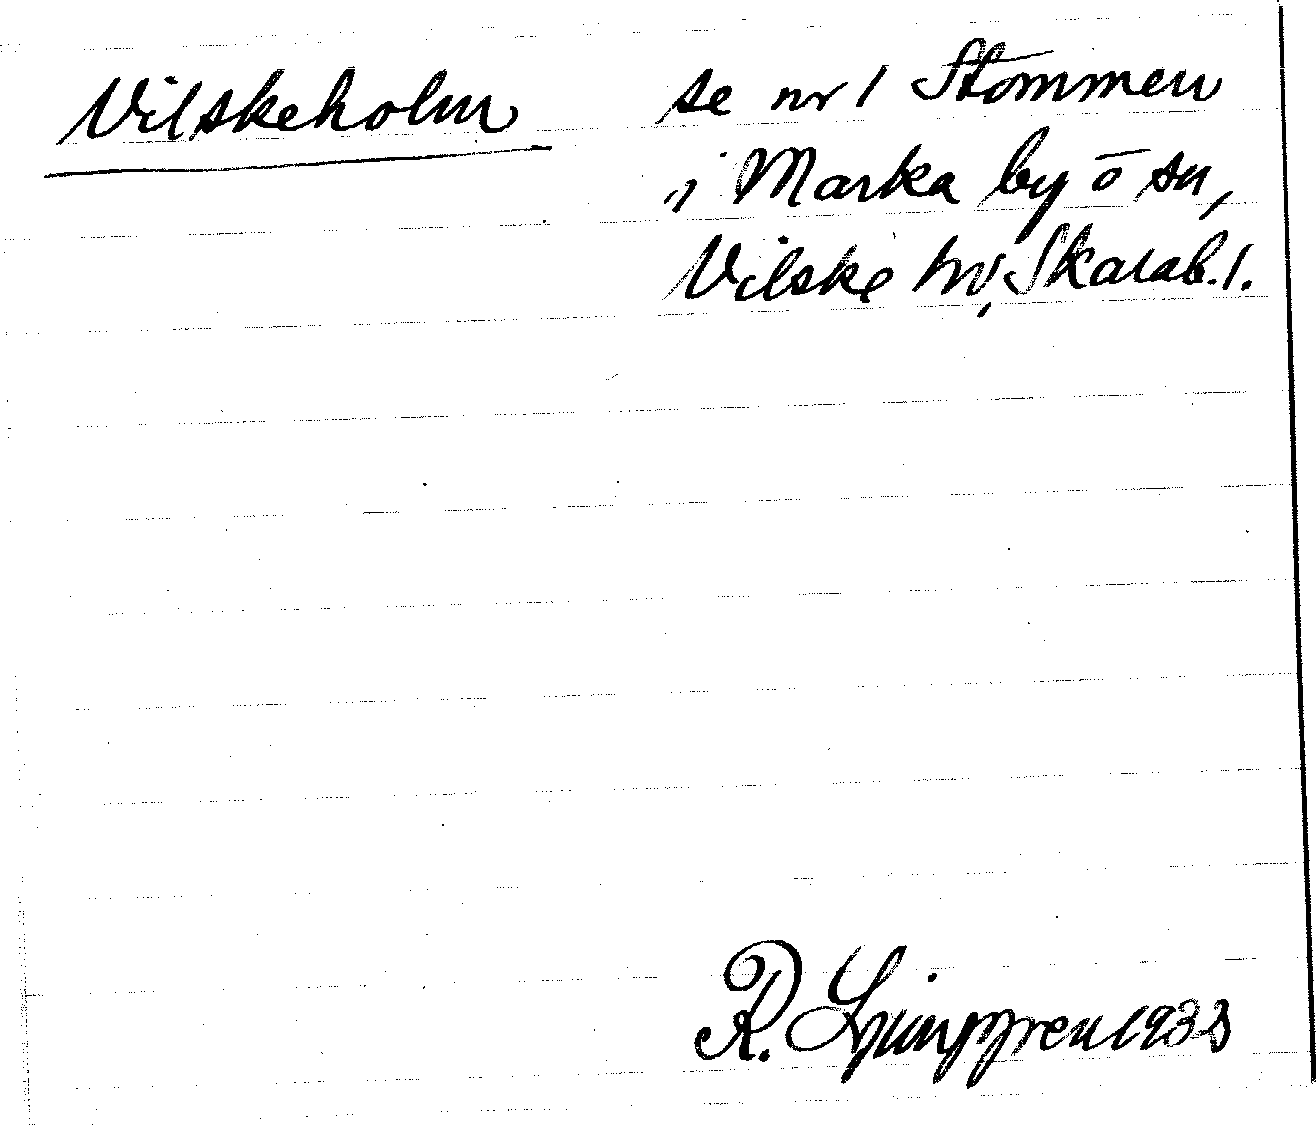 Vilskeholm se nr 1 Stommen
i Marka by o sn,
Vilske hd, Skarab. l.
R. Ljunggren 1933